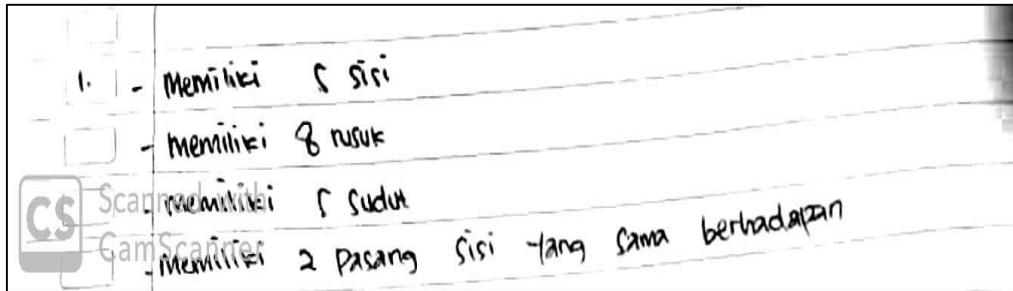 1. - Memiliki 5 sisi
- memiliki 8 rusuk
- memiliki 5 sudut
- memiliki 2 pasang sisi yang sama berhadapan
CS Scanned with
CamScanner